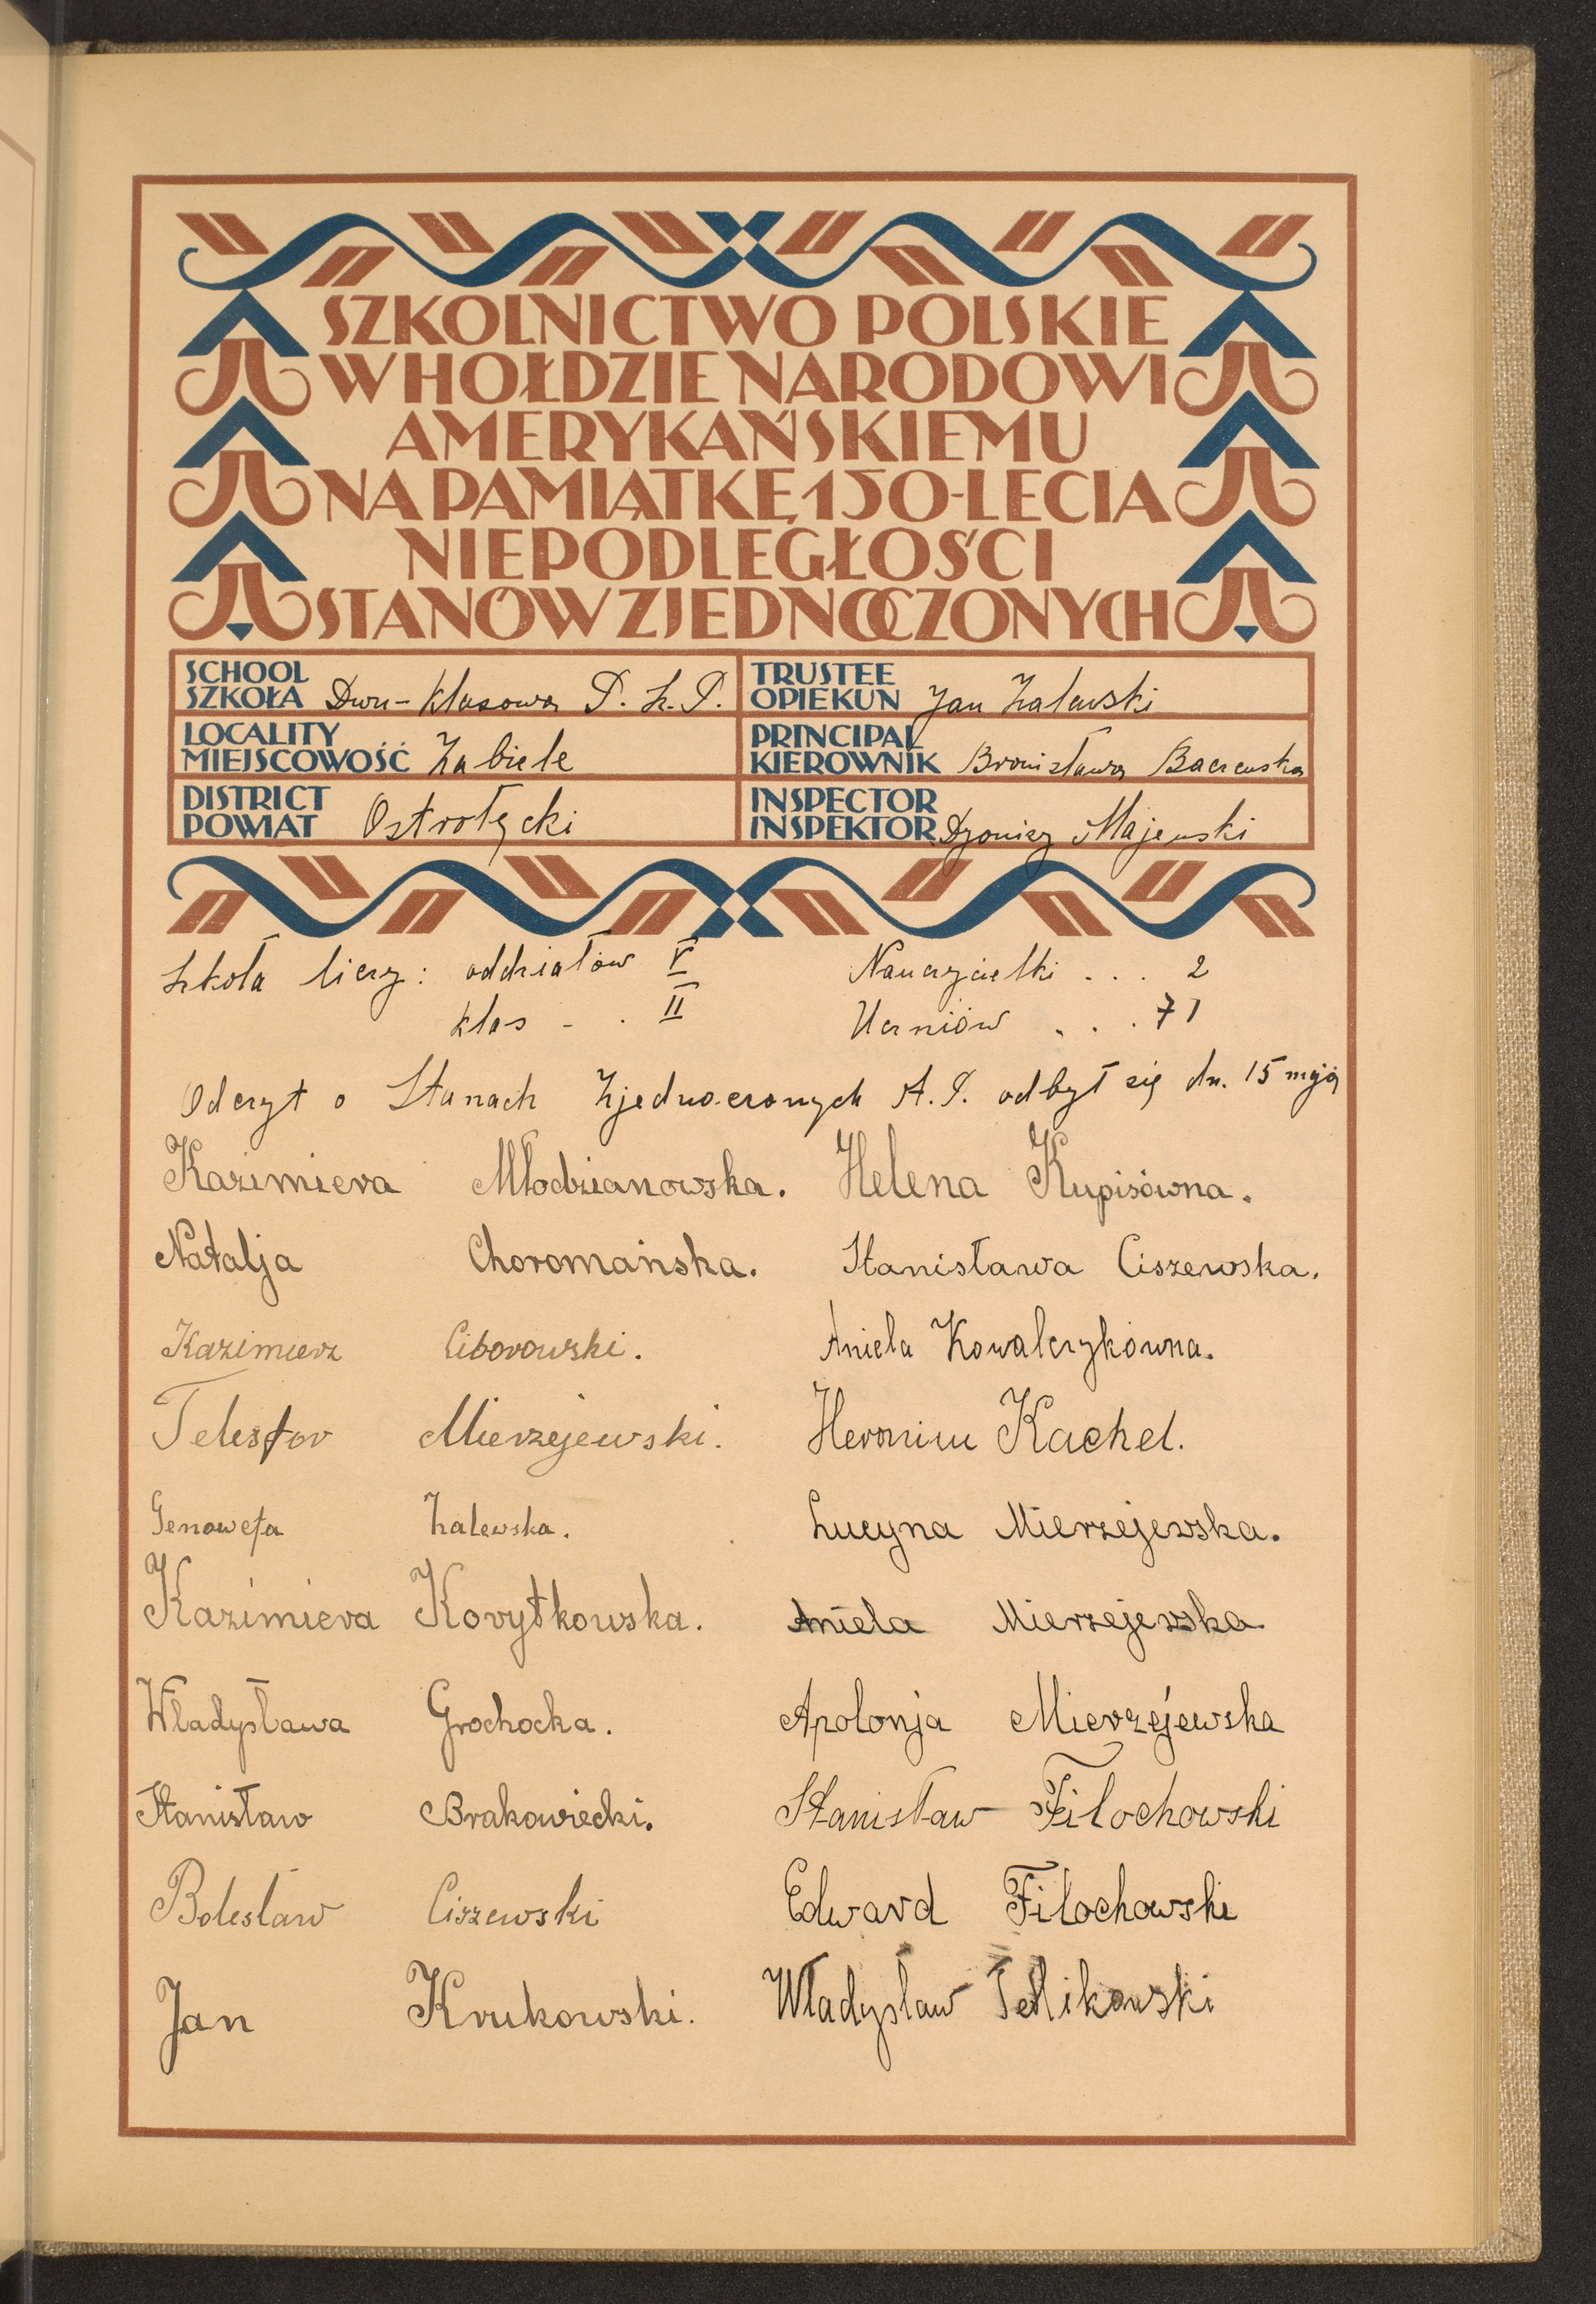 SZKOLNICTWO POLSKIE
W HOŁDZIE NARODOWI
AMERYKAŃSKIEMU
NA PAMIĄTKĘ 150-LECIA
NIEPODLEGŁOŚCI
STANÓW ZJEDNOCZONYCH
SCHOOL
SZKOŁA Dwu-klasowa P. S. P.
TRUSTEE
OPIEKUN Jan Zalewski
LOCALITY
MIEJSCOWOŚĆ Zabiele
PRINCIPAL
KIEROWNIK Bronisława Baczewska
DISTRICT
POWIAT Ostrołęcki
INSPECTOR
INSPEKTOR Dyonizy Majewski
Szkoła liczy: oddziałów V Nauczycielki . . . 2
klas - . II Uczniów . . . 71
Odczyt o Stanach Zjednoczonych A. P. odbył się dn. 15 maja
Kazimiera Młodzianowska. Helena Kupisówna.
Natalja Choromańska. Stanisława Ciszewska.
Kazimierz Ciborowski. Aniela Kowalczykówna.
Telesfor Mierzejewski. Heronim Kachel.
Genowefa Zalewska. Lucyna Mierzejewska.
Kazimiera Korytkowska. Aniela Mierzejewska
Władysława Grochocka. Apolonja Mierzejewska
Stanisław Brakowiecki. Stanisław Filochowski
Bolesław Ciszewski Edward Filochowski
Jan Krukowski. Władysław